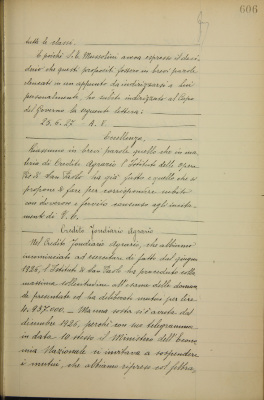 606
tutte le classi.
E poichè S.E. Mussolini aveva espresso il desi-
derio che questi propositi fossero in brevi parole
elencati in un appunto da indirizzarsi a Lui
personalmente, ho subito indirizzato al Capo
del Governo la seguente lettera:
25.6.27 A. V.
Eccellenza,
Riassumo in brevi parole quello che in ma-
teria di Credito Agrario l'Istituto delle Opere
Pie di San Paolo ha già fatto e quello che si
propone di fare per corrispondere subito
con devoione e fervido consenso agli intenti-
menti di V. E.
Credito Fondiario Agrario
Nel Credito Fondiario Agrario, che abbiamo
incominciato ad esercitare di fatto dal giugno
1926, l'Istituto di San Paolo ha proceduto colla
massima sollecitudine all'esame delle domande
presentate ed ha deliberato mutui per lire
4.937.000. — Ma una sosta si è avuta dal
dicembre 1926, perchè con suo telegramma
in data 10 stesso il Ministero dell'Econo-
mia Nazionale ci invitava a sospendere
i mutui, che abbiamo ripreso col febbra,